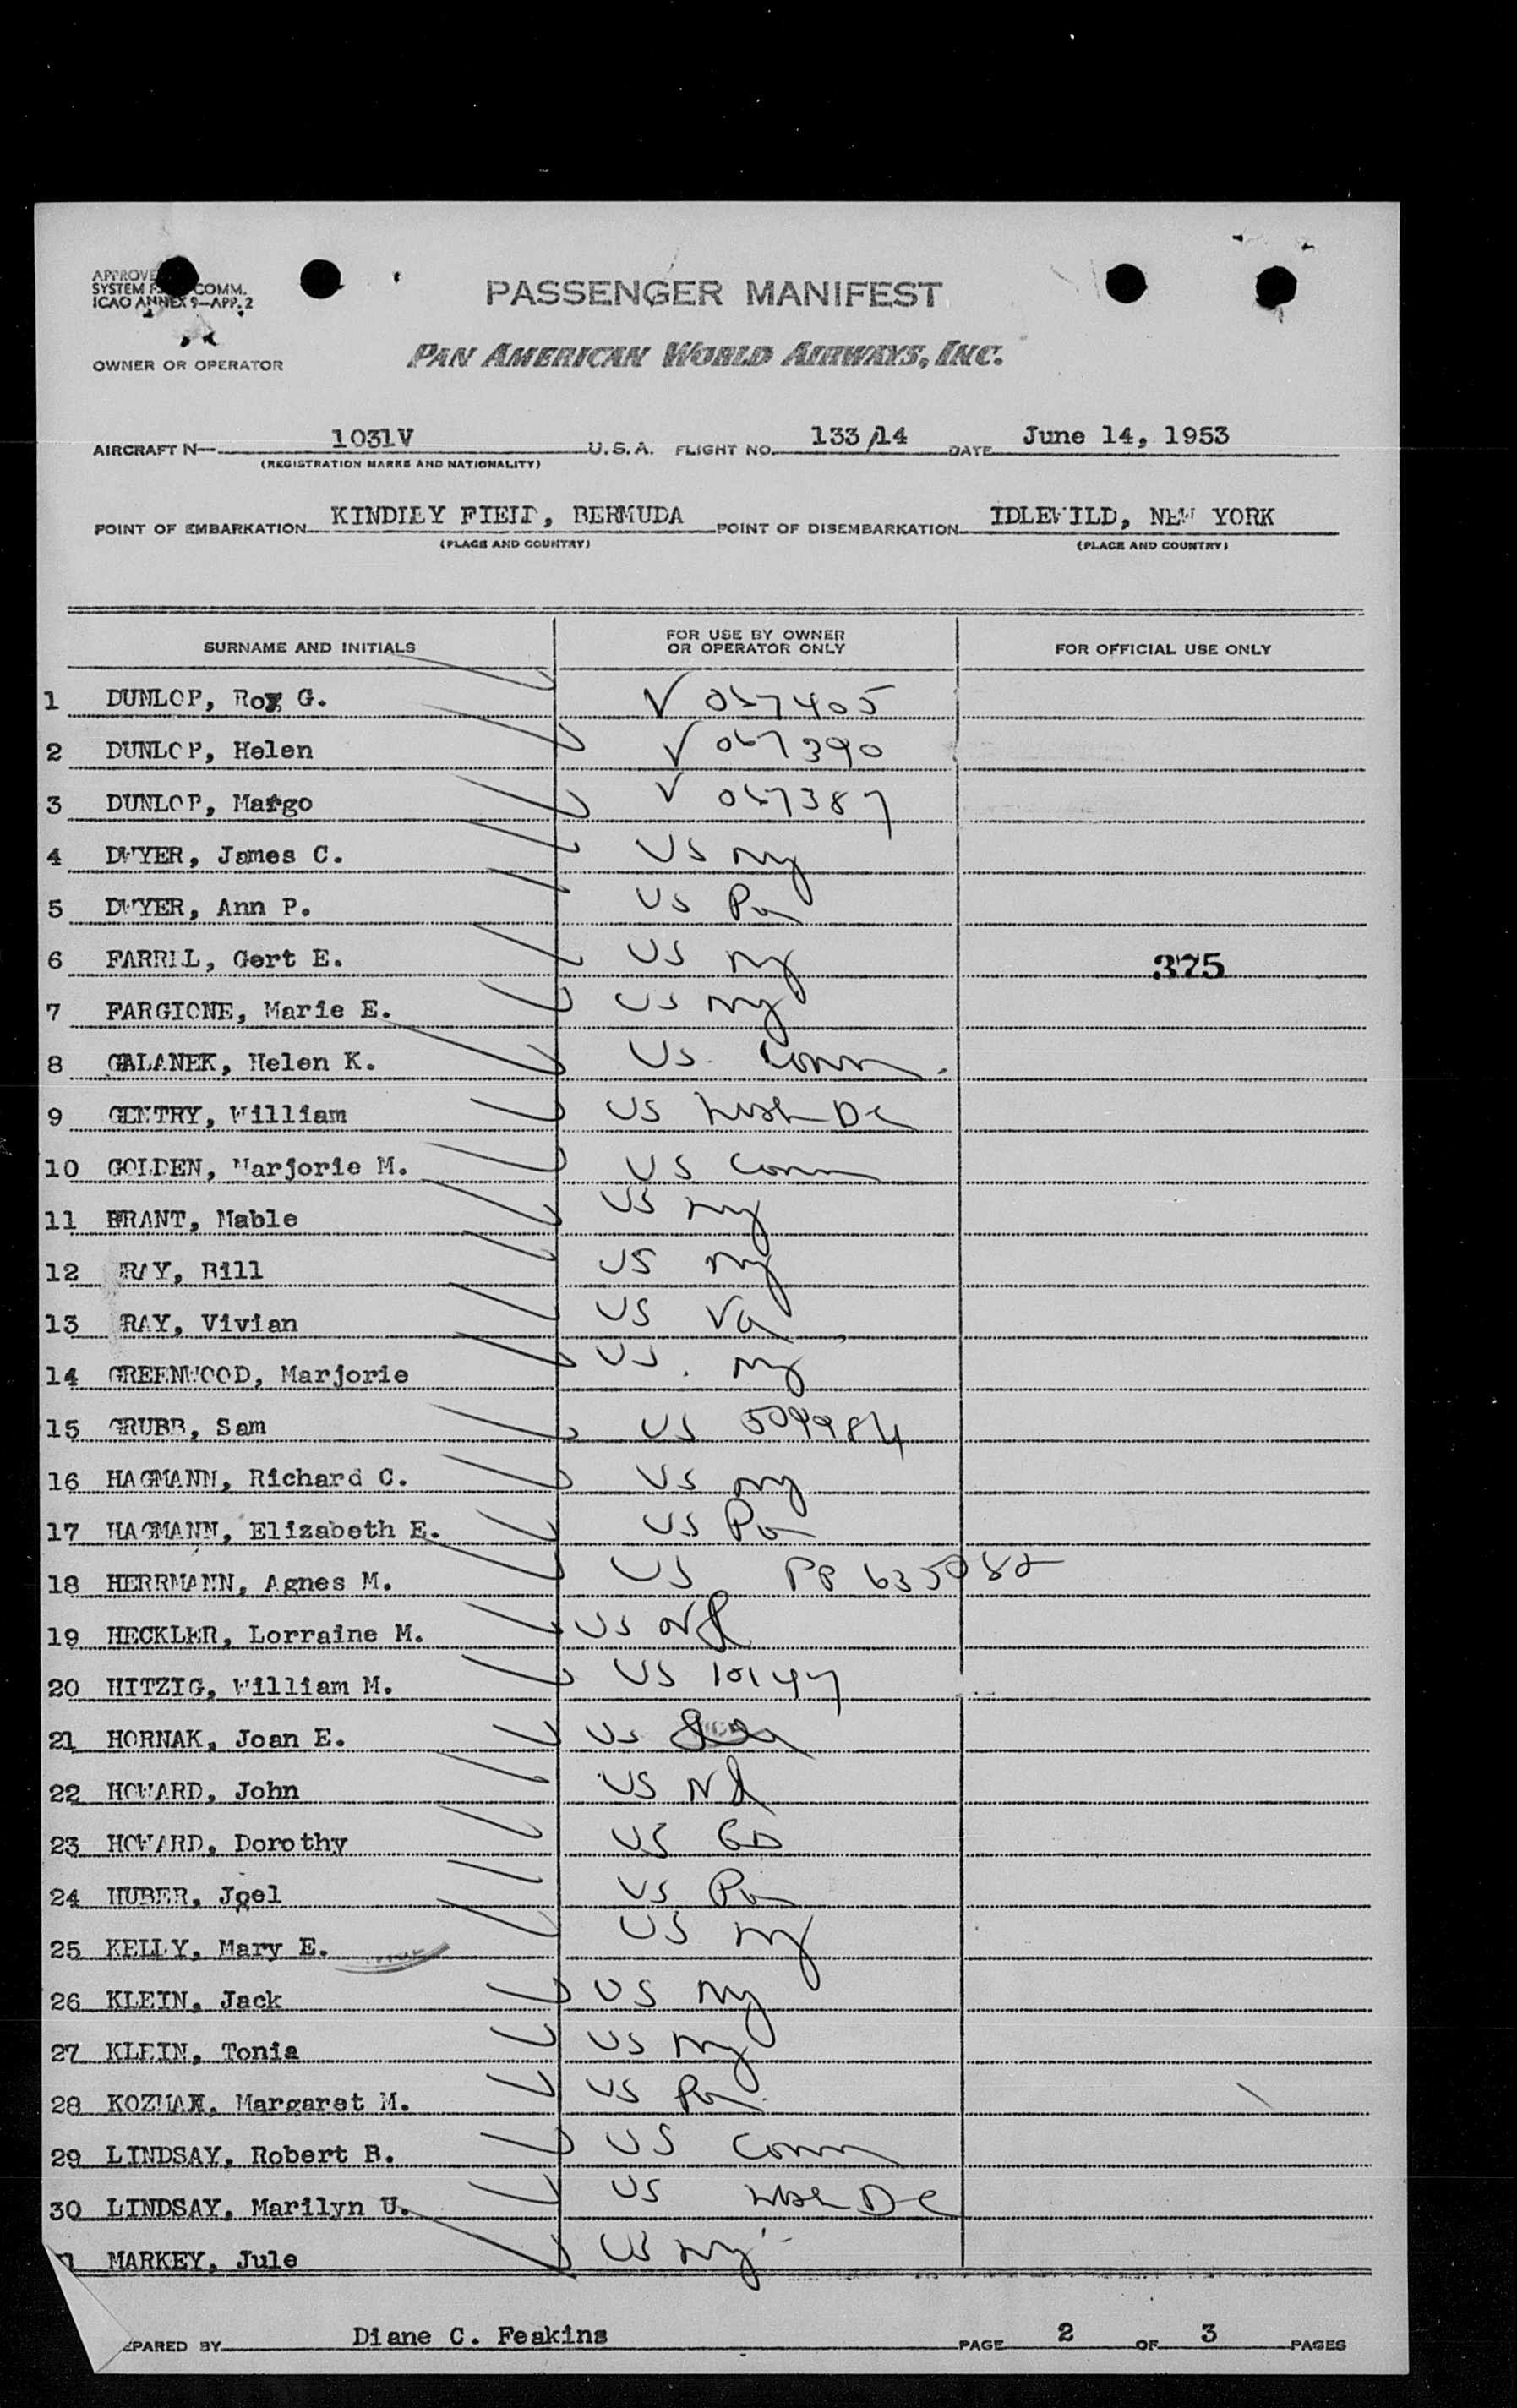 APPROVE
SYSTEM COMM.
ICAO ANNEX 9—APP. 2
PASSENGER MANIFEST
OWNER OR OPERATOR PAN AMERICAN WORLD AIRWAYS, INC.
AIRCRAFT N— 1031V U.S.A. FLIGHT NO. 133/14 DATE June 14, 1953
(REGISTRATION MARKS AND NATIONALITY)
POINT OF EMBARKATION KINDLEY FIELD, BERMUDA POINT OF DISEMBARKATION IDLEWILD, NEW YORK
(PLACE AND COUNTRY) (PLACE AND COUNTRY)
SURNAME AND INITIALS FOR USE BY OWNER OR OPERATOR ONLY FOR OFFICIAL USE ONLY
1 DUNLOP, Roy G. V 067405
2 DUNLOP, Helen V 067390
3 DUNLOP, Margo V 067387
4 DWYER, James C. US NY
5 DWYER, Ann P. US Pa
6 FARRLL, Gert E. US NY 375
7 FARGIONE, Marie E. US NY
8 GALANEK, Helen K. US Conn.
9 GENTRY, William US Wash DC
10 GOLDEN, Marjorie M. US Conn
11 GRANT, Mable US NY
12 RAY, Bill US NY
13 RAY, Vivian US Va
14 GREENWOOD, Marjorie US NY
15 GRUBB, Sam US 509984
16 HAGMANN, Richard C. US NY
17 HAGMANN, Elizabeth E. US Pa
18 HERRMANN, Agnes M. US PP 635082
19 HECKLER, Lorraine M. US NJ
20 HITZIG, William M. US 10147
21 HORNAK, Joan E. US
22 HOWARD, John US NJ
23 HOWARD, Dorothy US
24 HUBER, Joel US Pa
25 KELLY, Mary E. US NY
26 KLEIN, Jack US NY
27 KLEIN, Tonia US NY
28 KOZMAN, Margaret M. US Pa
29 LINDSAY, Robert B. US Conn
30 LINDSAY, Marilyn U. US Wash DC
MARKEY, Jule US NY
EPARED BY Diane C. Feakins PAGE 2 OF 3 PAGES